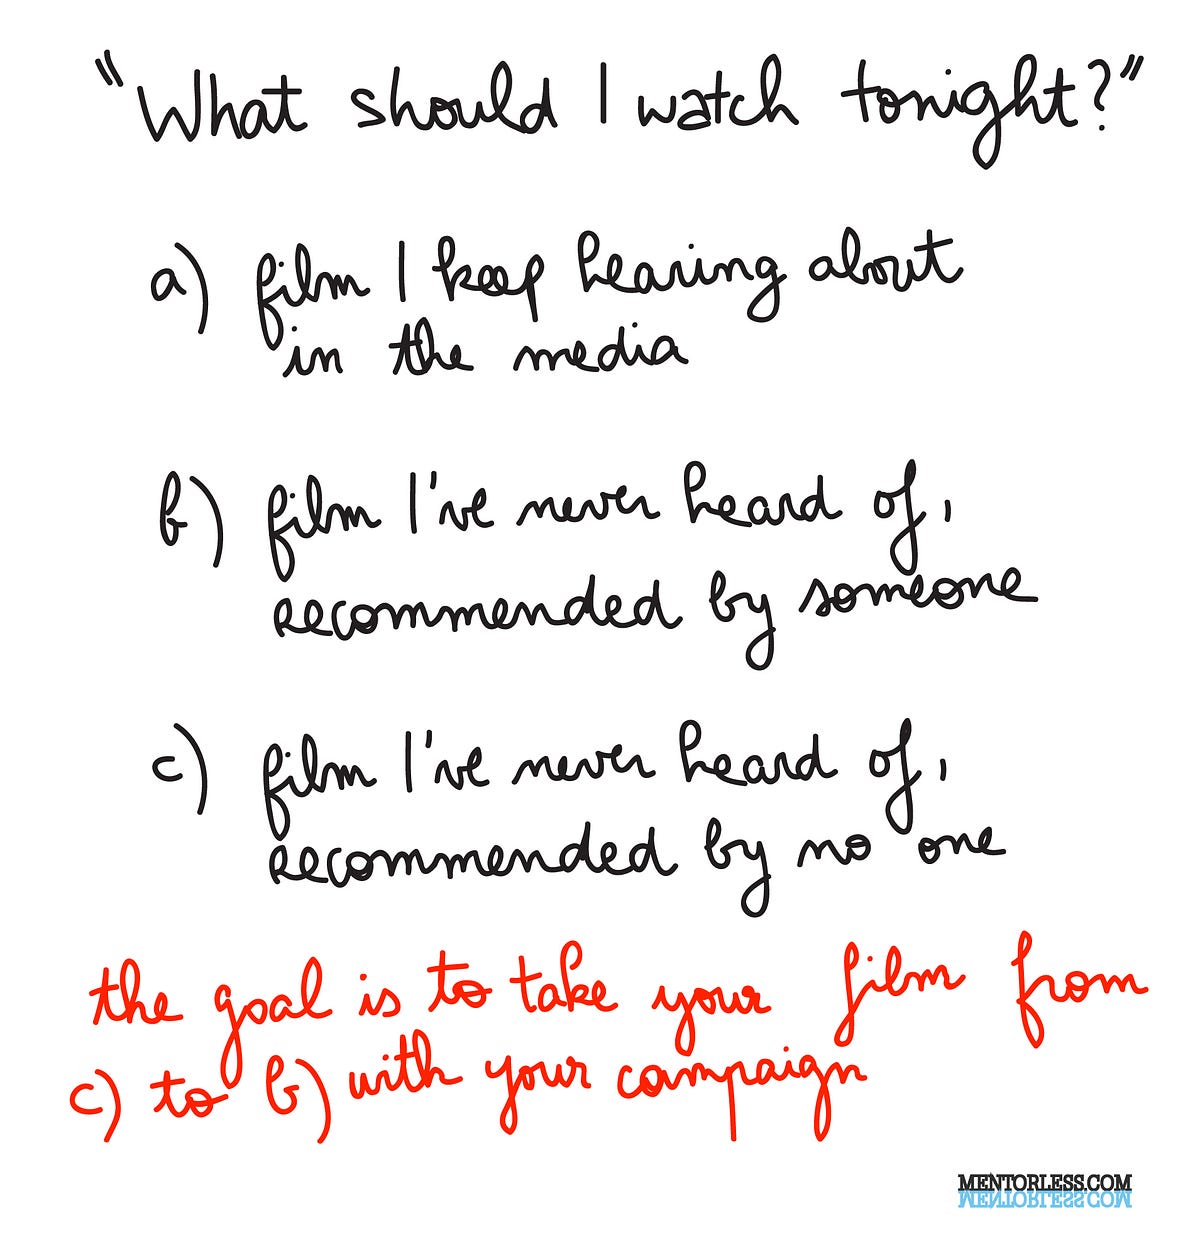 "What should I watch tonight?"
a) film I keep hearing about
in the media
b) film I've never heard of,
recommended by someone
c) film I've never heard of,
recommended by no one
the goal is to take your film from
c) to b) with your campaign
MENTORLESS.COM